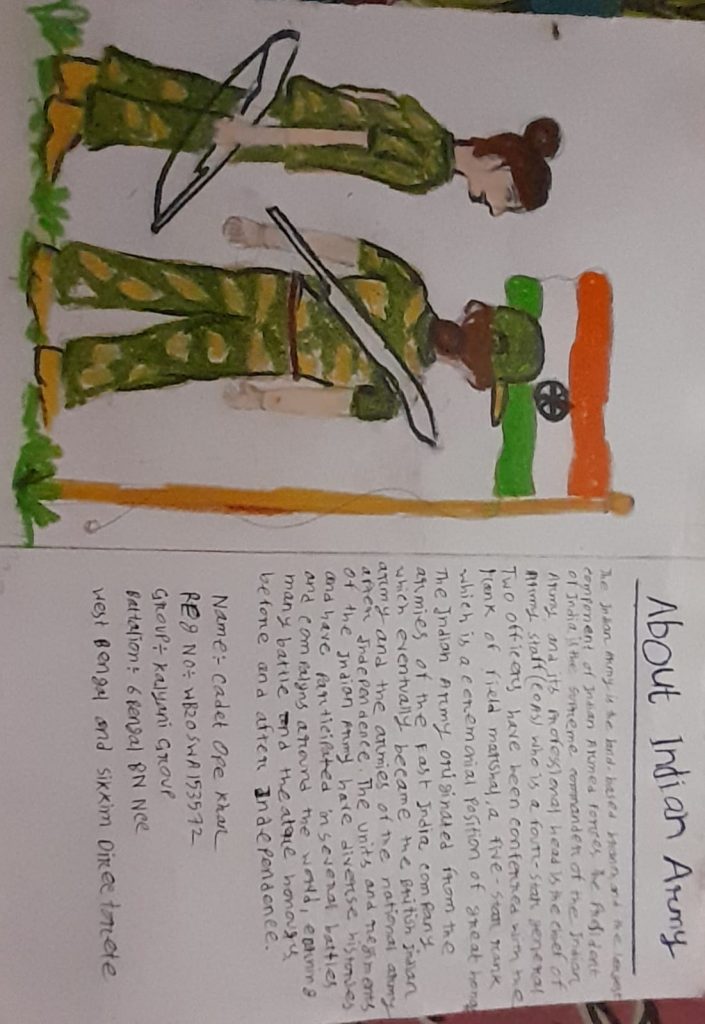 About Indian Army
The Indian Army is the land-based branch and the largest
component of Indian Armed Forces. The President
of India is the Supreme commander of the Indian
Army and its Professional head is the chief of
Army staff (COAS) who is a four-star general
Two officers have been conferred with the
rank of field marshal, a five-star rank
which is a ceremonial position of great honour
The Indian Army originated from the
armies of the East India company,
which eventually became the British Indian
army and the armies of the national army
after Independence. The units and regiments
of the Indian Army have diverse histories
and have participated in several battles
and campaigns around the world, earning
many battle and theatre honours
before and after Independence.
Name:- Cadet Ope Khan
REg No:- WB20SWA153572
Group:- Kalyani Group
Battalion:- 6 Bengal BN Ncc
West Bengal and Sikkim Directorete